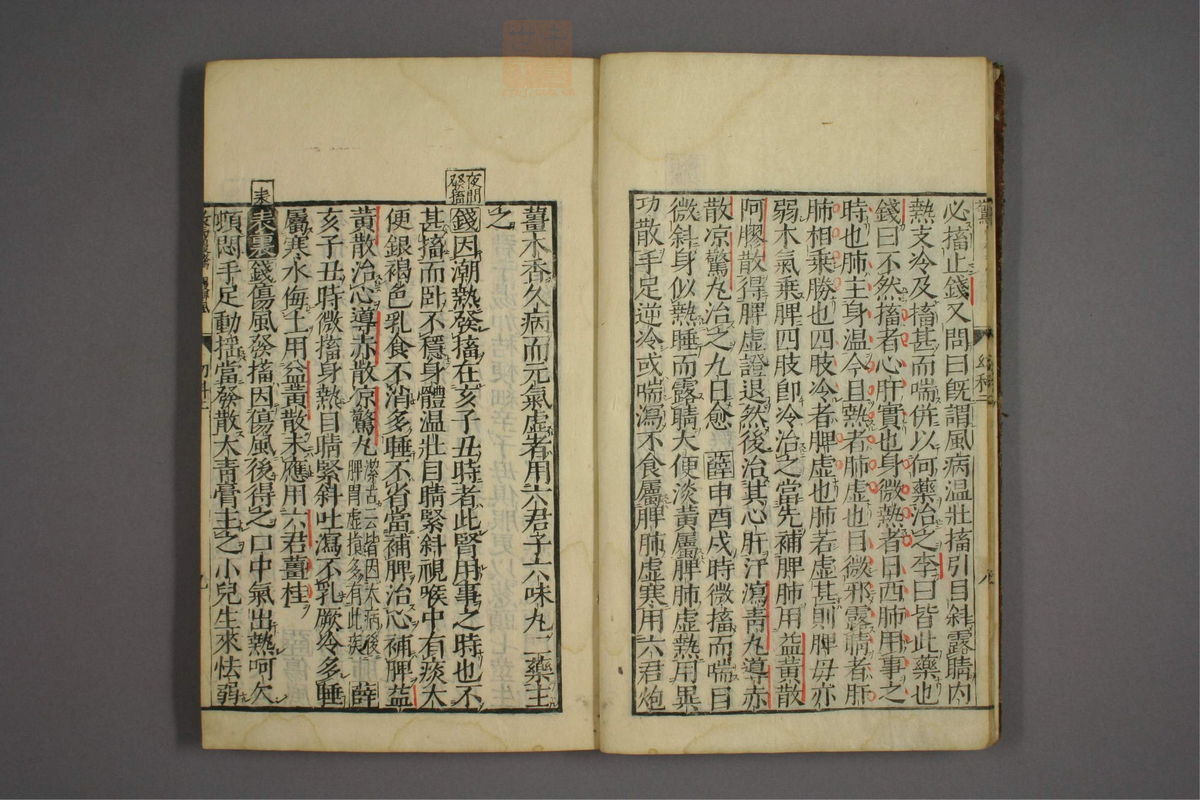 必搐止錢又問曰旣謂風病温壯搐引目斜露睛內
熱支冷及搐甚而喘併以何藥治之李曰皆此藥也
錢曰不然搐者心肝實也身微熱者日西肺用事之
時也肺主身温今且熱者肺虛也目微邪露睛者肝
肺相乘勝也四肢冷者脾虛也肺若虛甚則脾母亦
弱木氣乘脾四肢卽冷治之當先補脾肺用益黃散
阿膠散得脾虛證退然後治其心肝汗瀉靑丸導赤
散凉驚丸治之九日愈 薛申酉戌時微搐而喘目
微斜身似熱睡而露睛大便淡黃屬脾肺虛熱用異
功散手足逆冷或喘瀉不食屬脾肺虛寒用六君炮
薑木香久病而元氣虛者用六君子六味丸二藥主
之
夜間發搐
錢因潮熱發搐在亥子丑時者此腎用事之時也不
甚搐而卧不穩身體温壯目睛緊斜視喉中有痰大
便銀褐色乳食不消多睡不省當補脾治心補脾益
黃散治心導赤散凉驚丸 潔古云皆因大病後脾胃虛損多有此疾 薛
亥子丑時微搐身熱目睛緊斜吐瀉不乳厥冷多睡
屬寒水侮土用益黃散未應用六君薑桂
表裏錢傷風發搐因傷風後得之口中氣出熱呵欠
頓悶手足動搖當發散大靑膏主之小兒生來怯弱